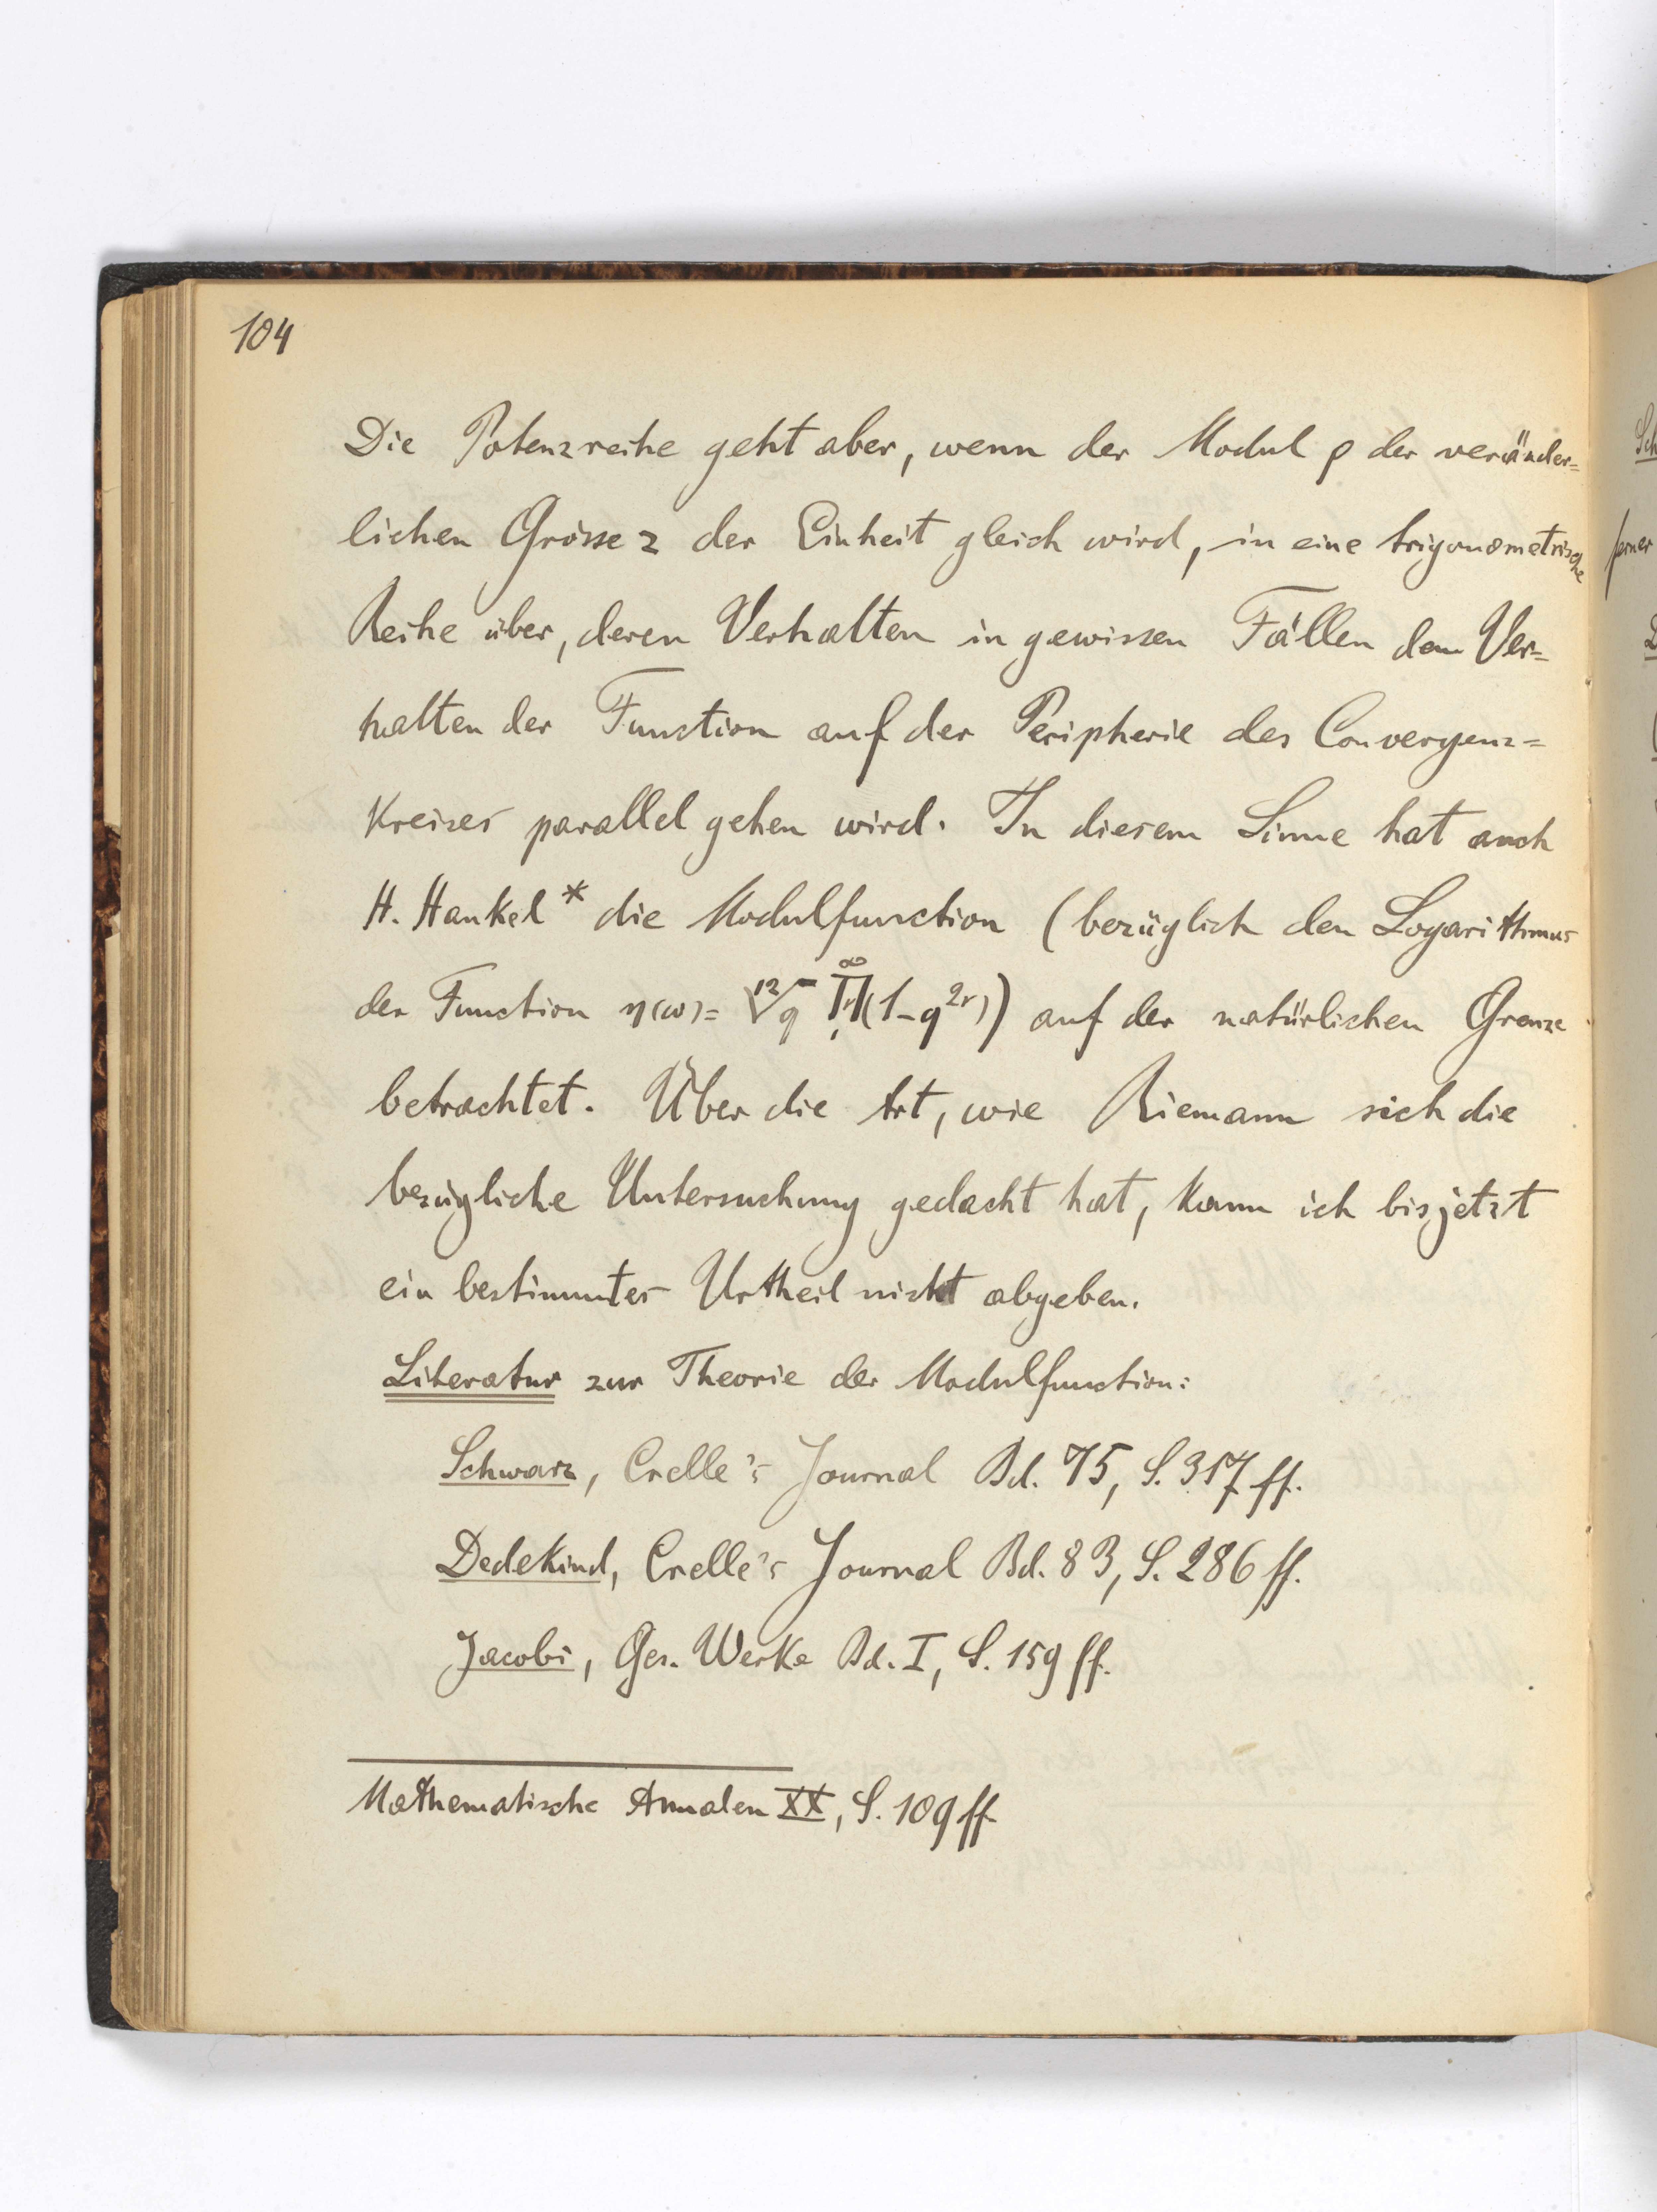 104
Die Potenzreihe geht aber, wenn der Modul ρ der veränder=
lichen Grösse z der Einheit gleich wird, in eine trigonometrische
Reihe über, deren Verhalten in gewissen Fällen dem Ver=
halten der Function auf der Peripherie des Convergenz=
Kreises parallel gehen wird. In diesem Sinne hat auch
H. Hankel* die Modulfunction (bezüglich den Logarithmus
der Function η(ω)= ¹²√q ∏(1-q²ʳ)) auf der natürlichen Grenze
betrachtet. Über die Art, wie Riemann sich die
bezügliche Untersuchung gedacht hat, kann ich bisjetzt
ein bestimmtes Urtheil nicht abgeben.
Literatur zur Theorie der Modulfunction:
Schwarz, Crelle's Journal Bd. 75, S. 317 ff.
Dedekind, Crelle's Journal Bd. 83, S. 286 ff.
Jacobi, Ges. Werke Bd. I, S. 159 ff.
Mathematische Annalen XX, S. 109 ff.
ferner